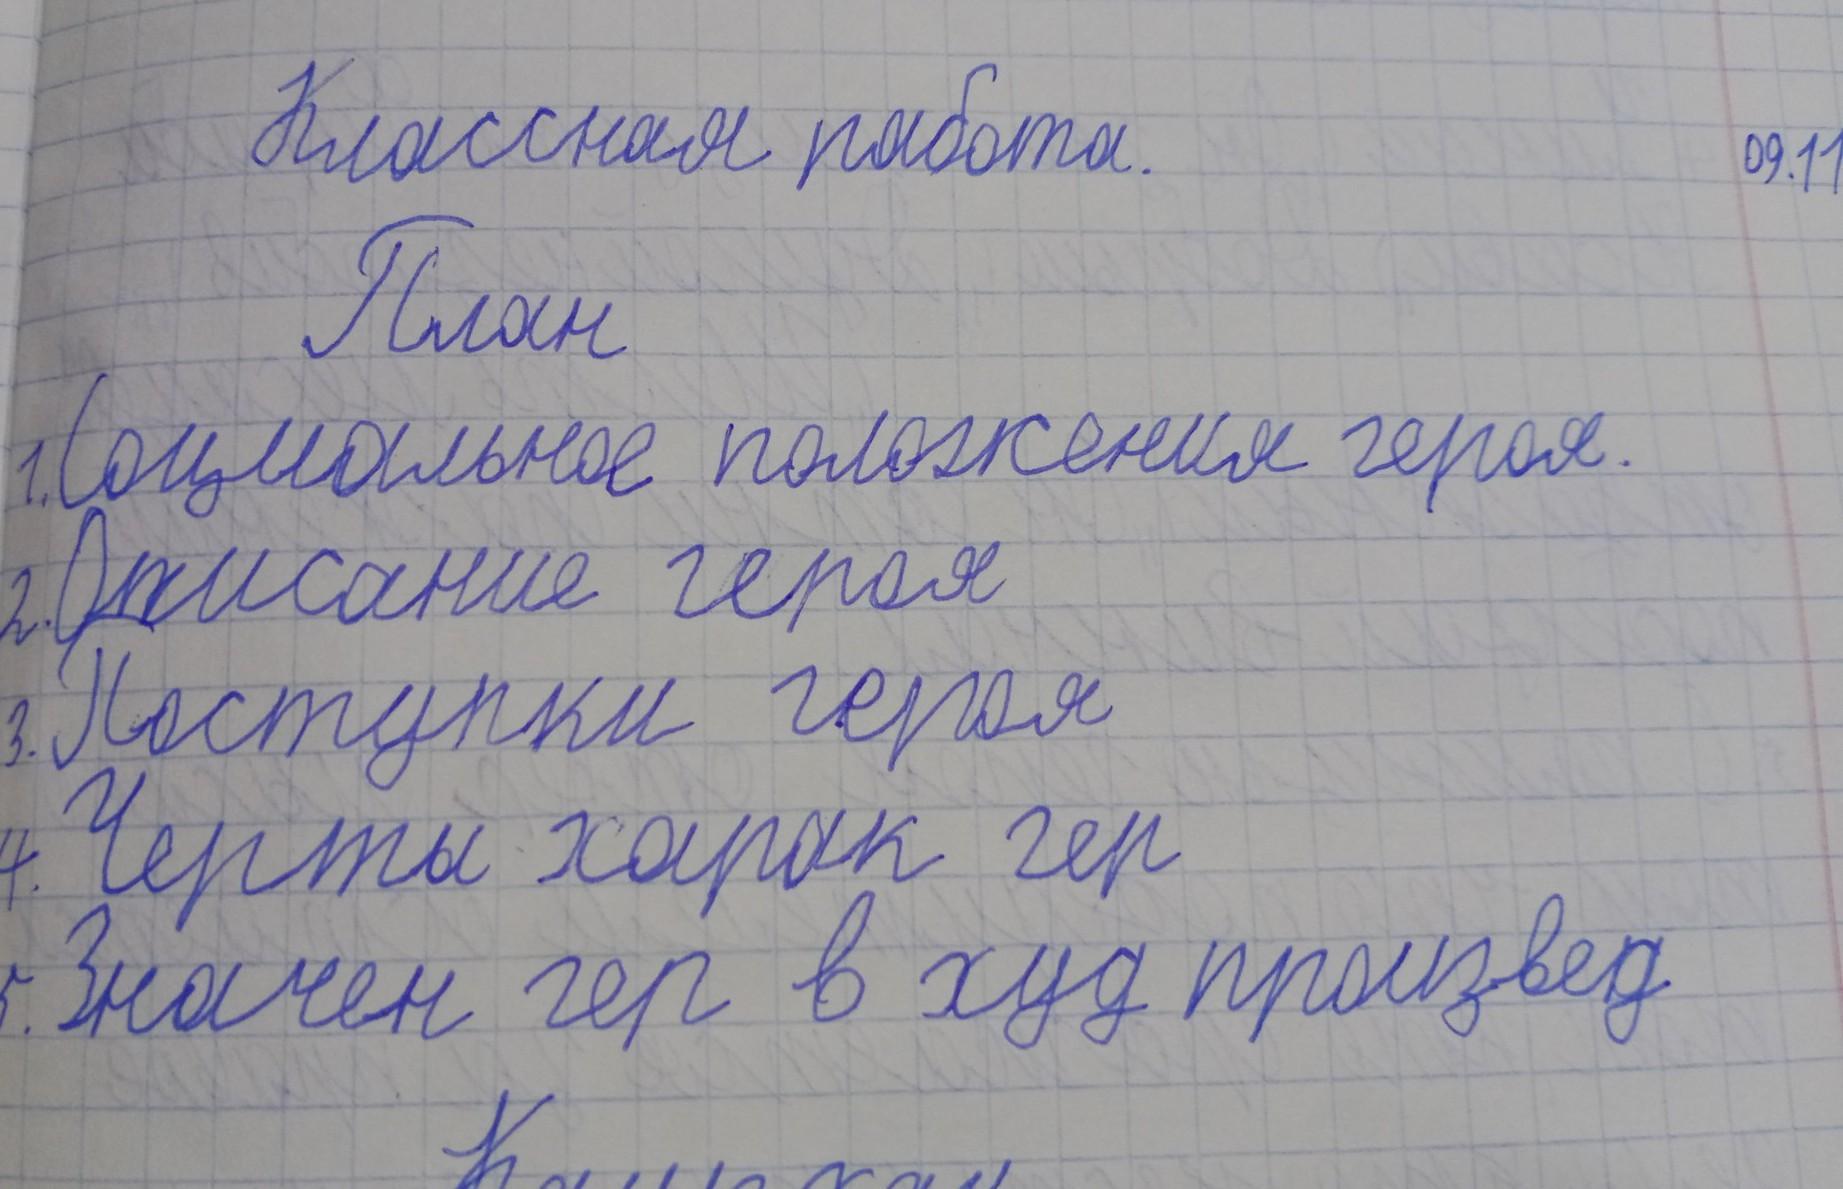 Классная работа. 09.11
План
1. Социальное положения героя.
2. Описание героя
3. Поступки героя
4. Черты харак гер
5. Значен гер в худ произвед